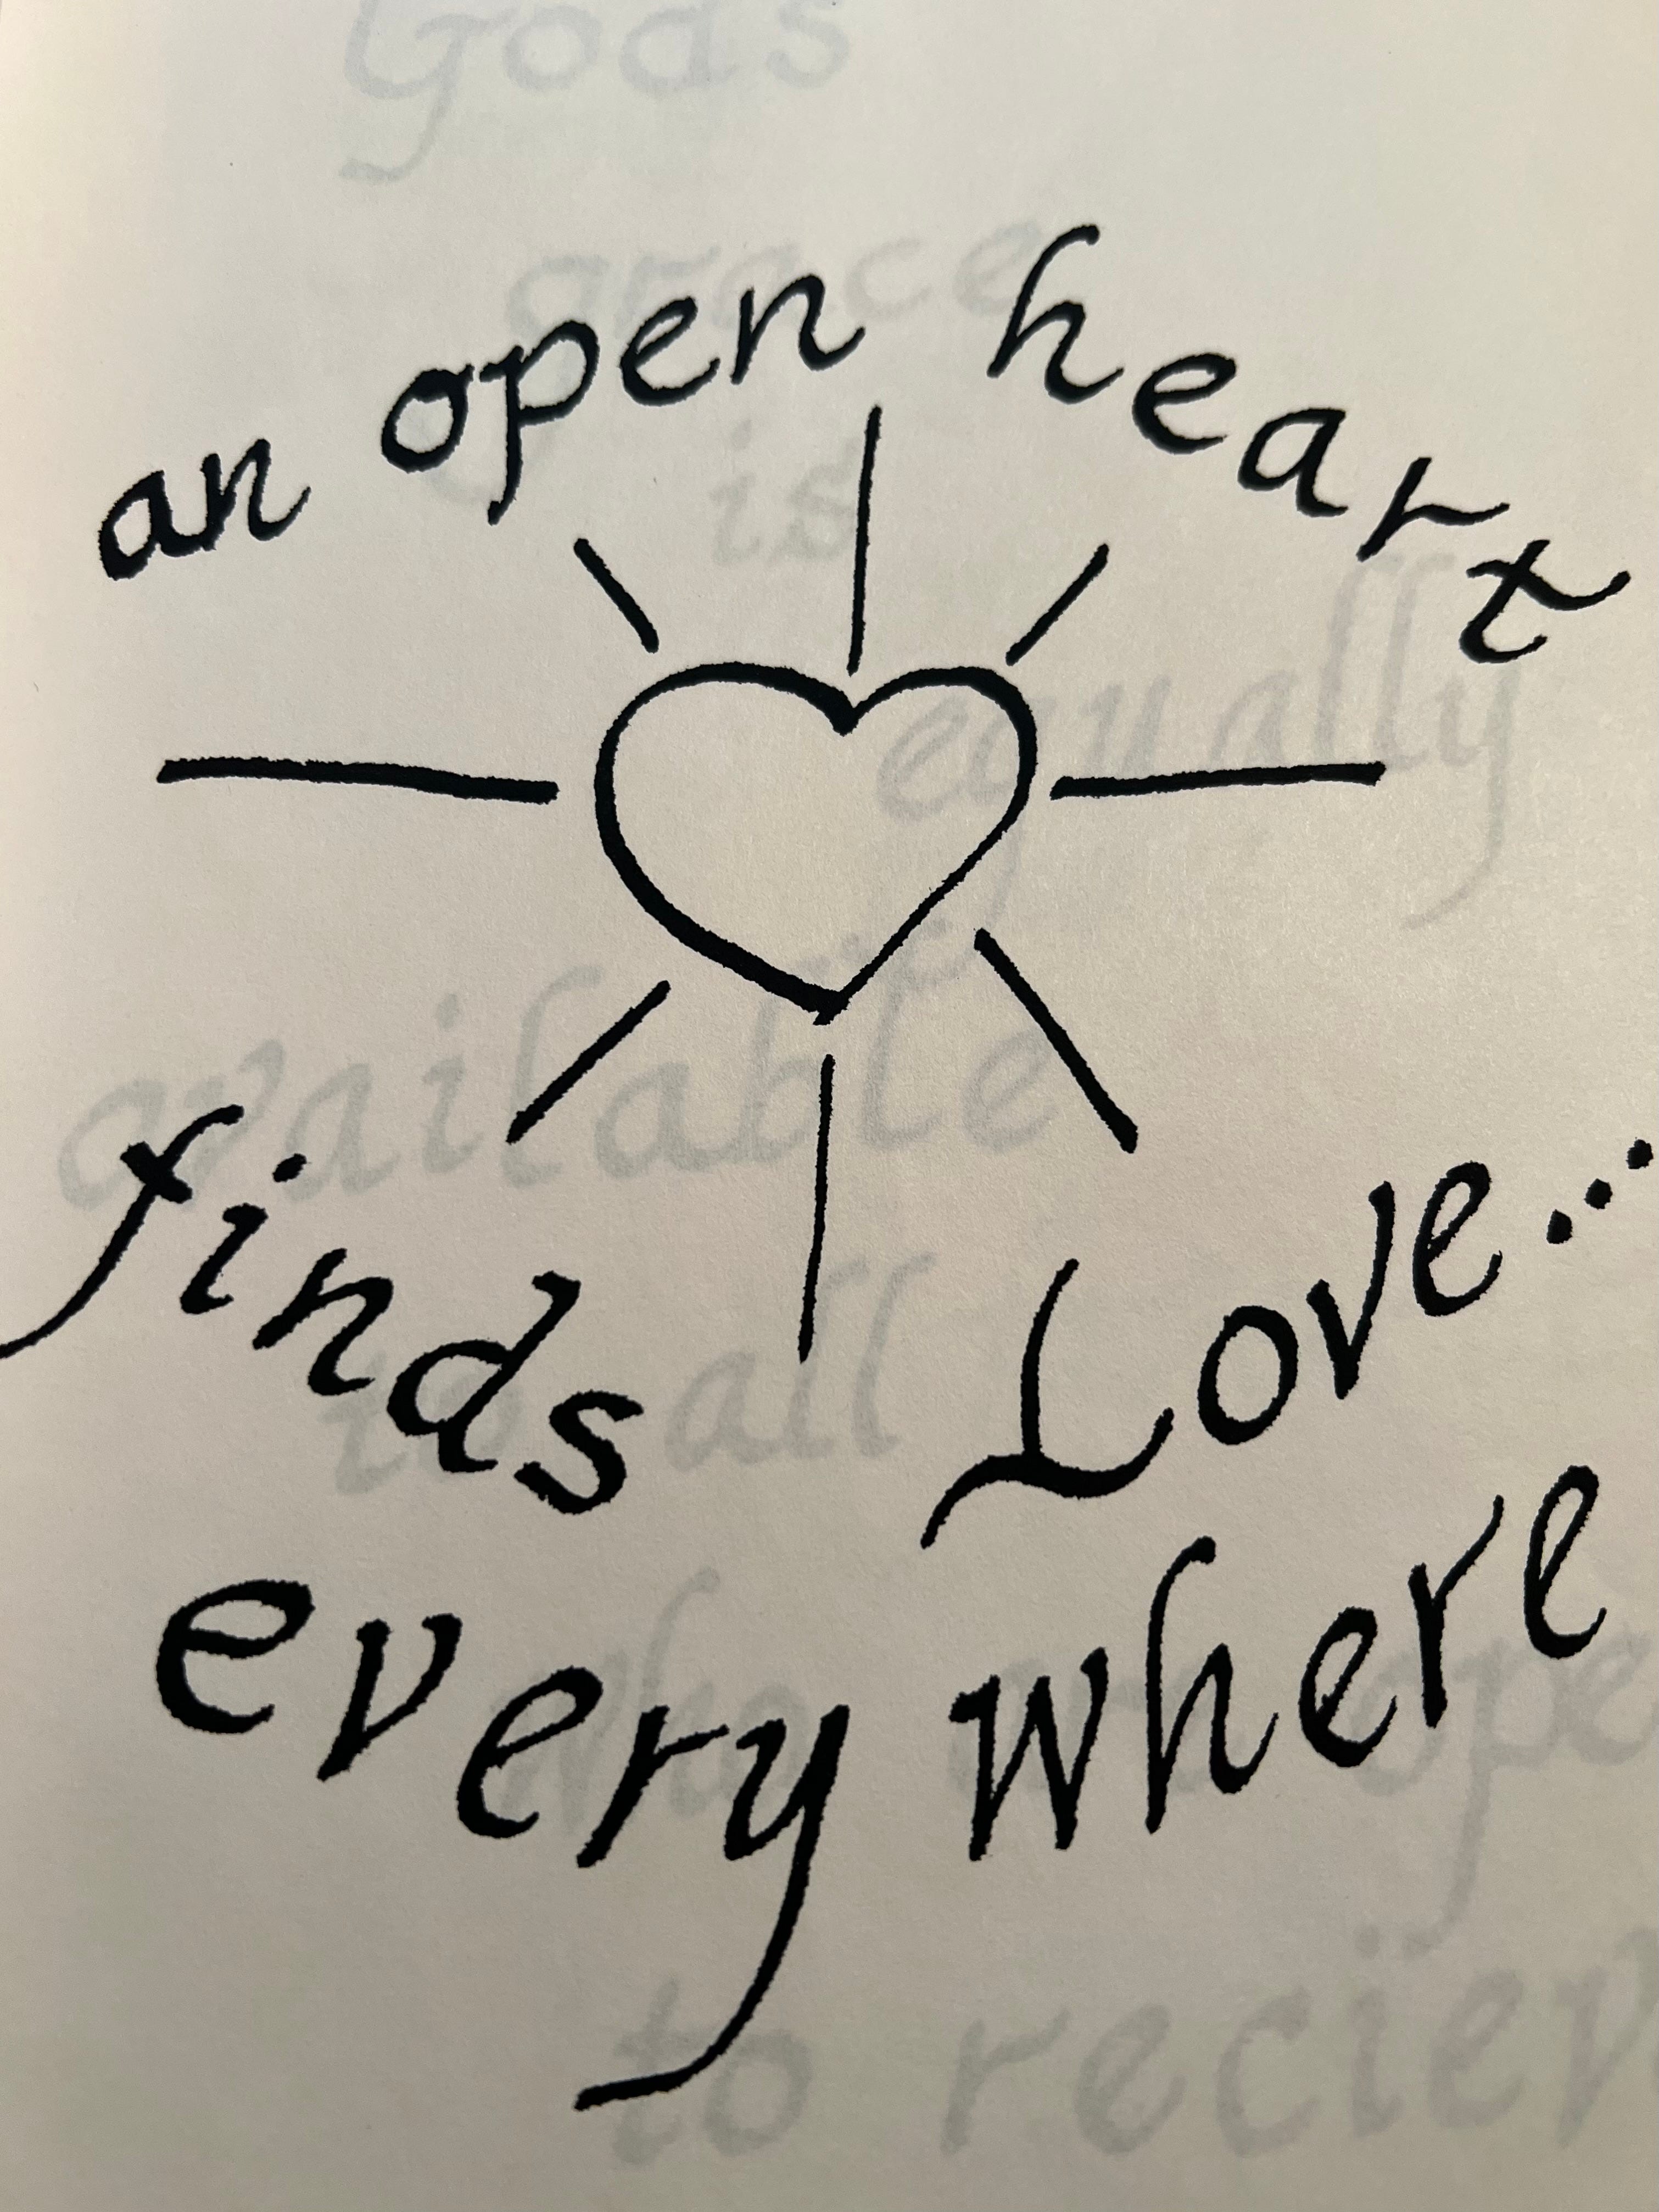 an open heart
finds Love...
every where
Gods
grace
is
equally
available
to all
who
to